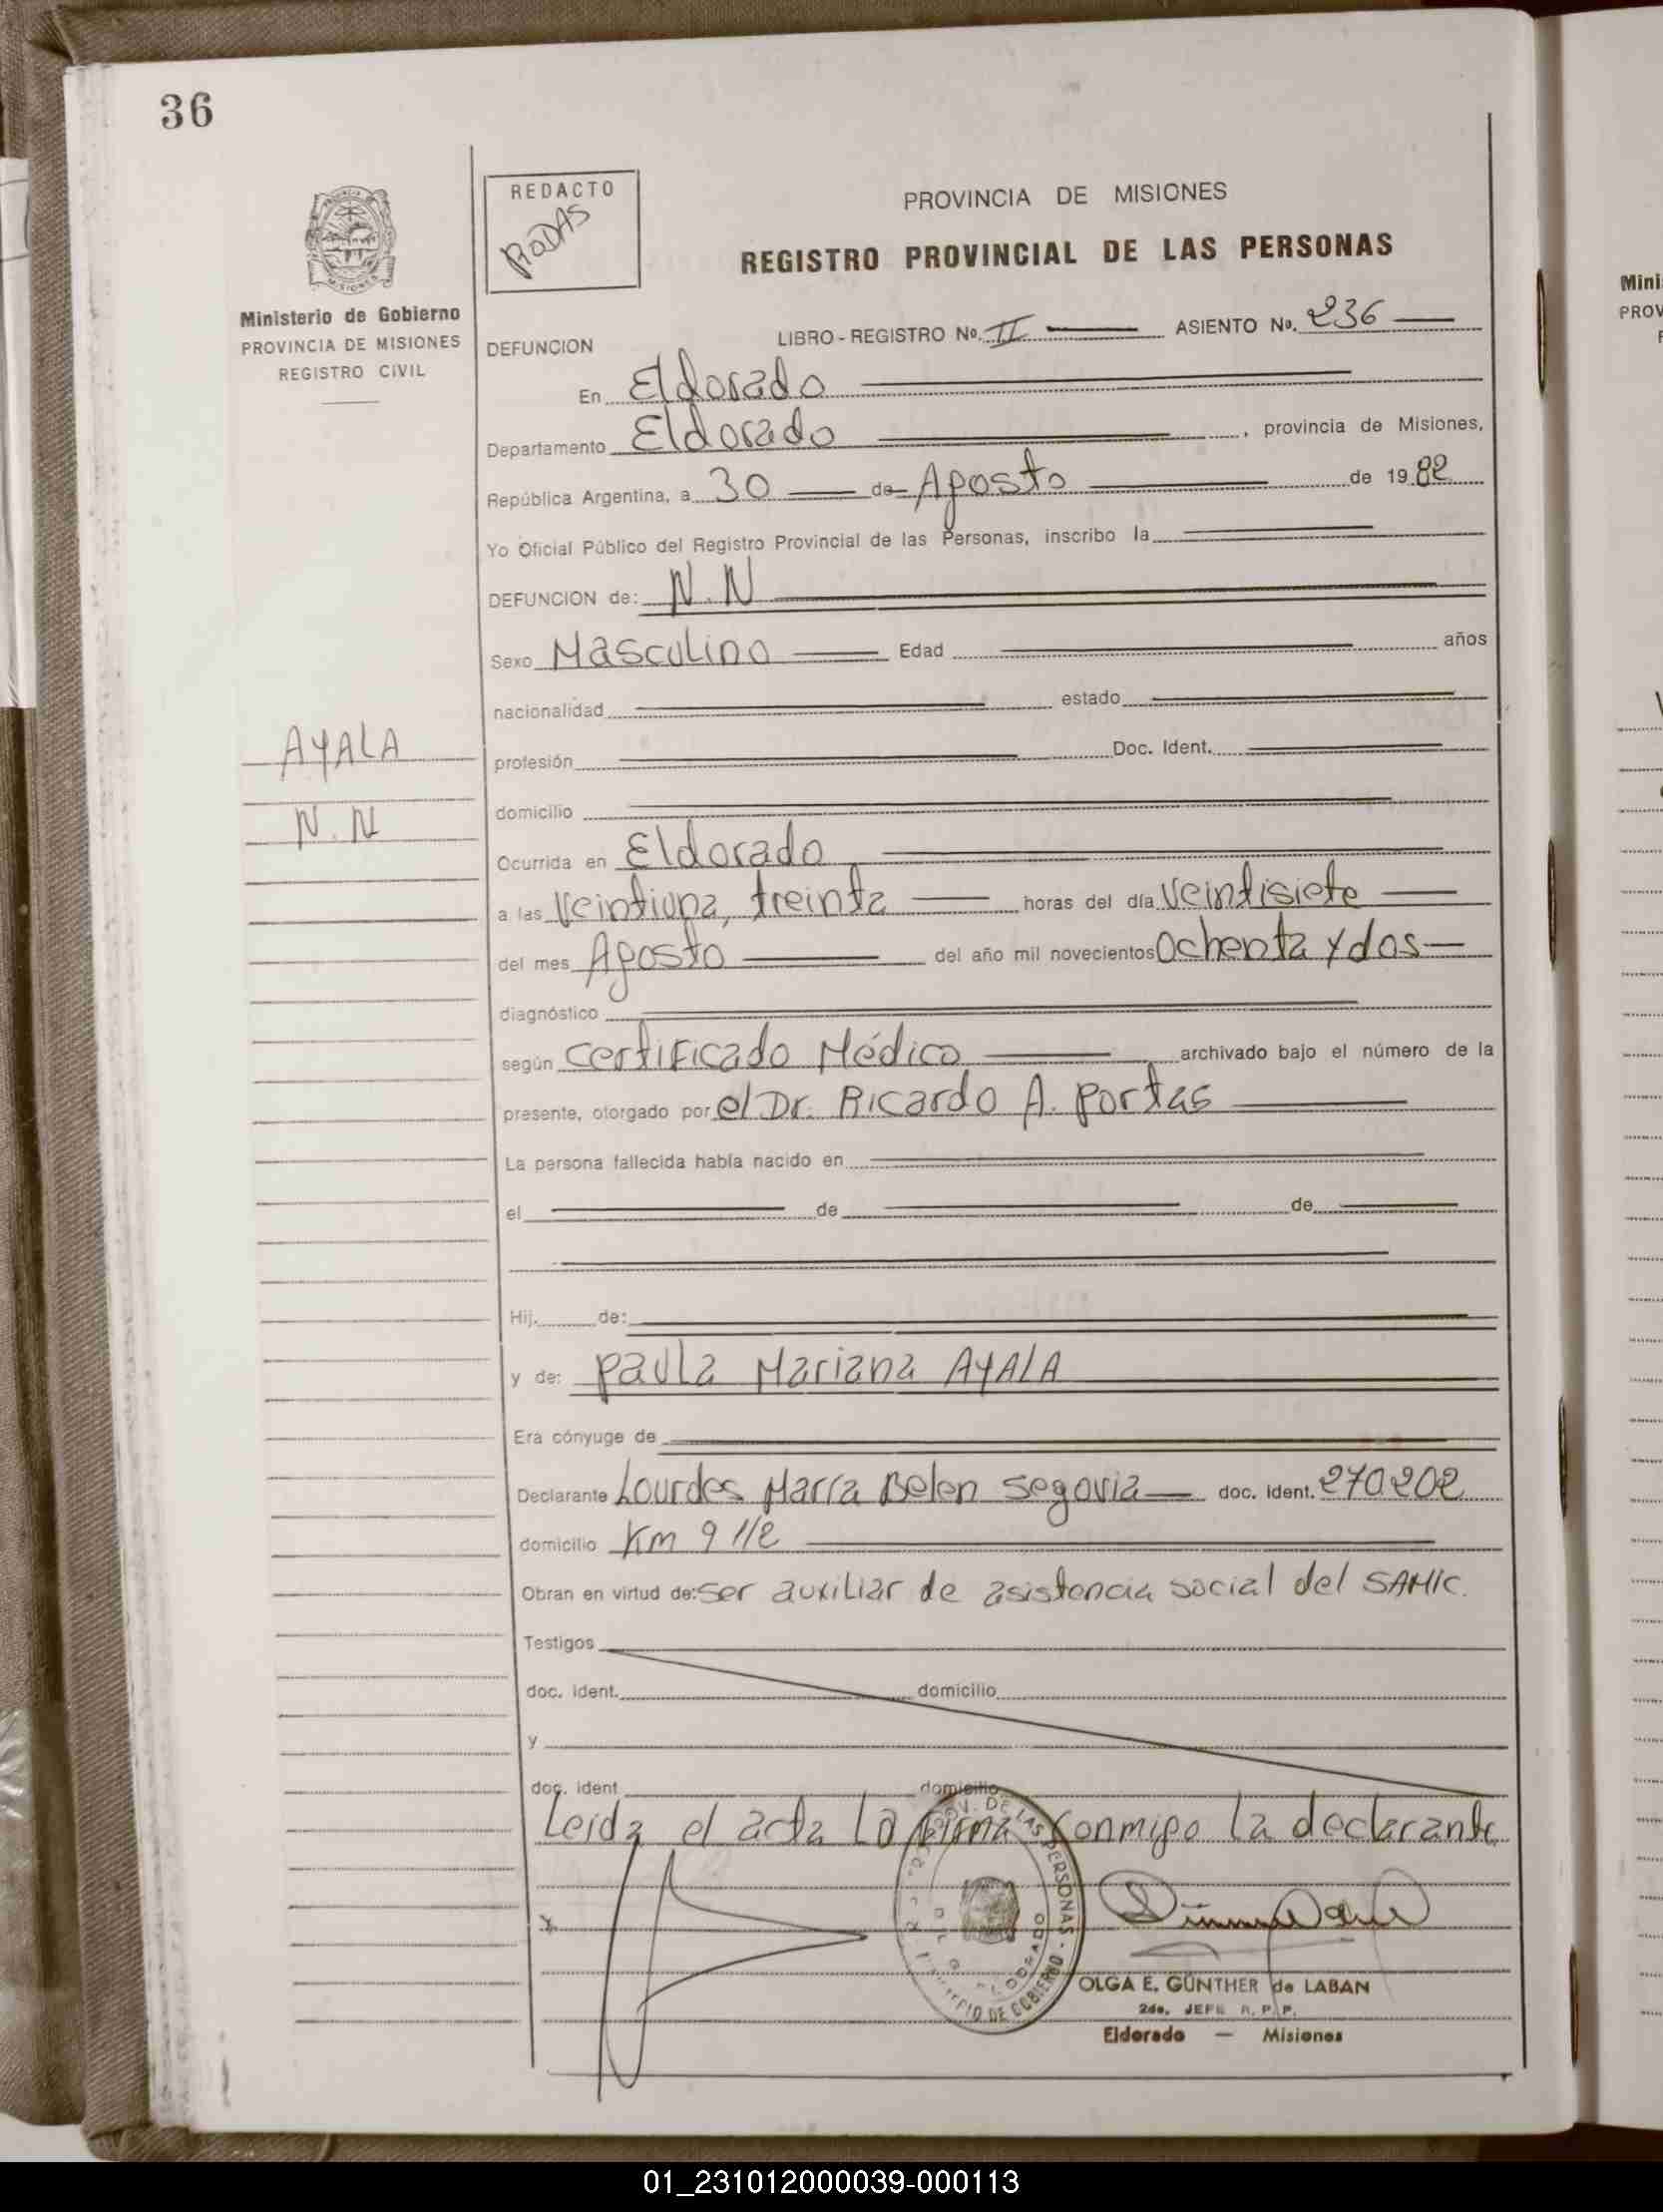 36
REDACTO
RODAS
PROVINCIA DE MISIONES
REGISTRO PROVINCIAL DE LAS PERSONAS
Ministerio de Gobierno
PROVINCIA DE MISIONES
REGISTRO CIVIL
DEFUNCION LIBRO - REGISTRO No. II ASIENTO No. 236
En Eldorado
Departamento Eldorado, provincia de Misiones,
República Argentina, a 30 de Agosto de 1982
Yo Oficial Público del Registro Provincial de las Personas, inscribo la
DEFUNCION de: N.N
Sexo Masculino Edad años
nacionalidad estado
AYALA
profesión Doc. Ident.
N.N
domicilio
Ocurrida en Eldorado
a las veintiuna, treinta horas del día veintisiete
del mes Agosto del año mil novecientos ochenta y dos
diagnóstico
según certificado Médico archivado bajo el número de la
presente, otorgado por el Dr. Ricardo A. Portas
La persona fallecida había nacido en
el de de
Hij. de:
y de: Paula Mariana AYALA
Era cónyuge de
Declarante Lourdes María Belen Segovia doc. ident. 270.202
domicilio Km 9 1/2
Obran en virtud de: ser auxiliar de asistencia social del SAMIC.
Testigos
doc. ident. domicilio
y
doc. ident domicilio
Leida el acta la firma conmigo la declarante
PROV. DE LAS PERSONAS
MINISTERIO DE GOBIERNO
ELDORADO
OLGA E. GÜNTHER de LABAN
2do. JEFE R. P. P.
Eldorado — Misiones
Mini
PROV
01_231012000039-000113